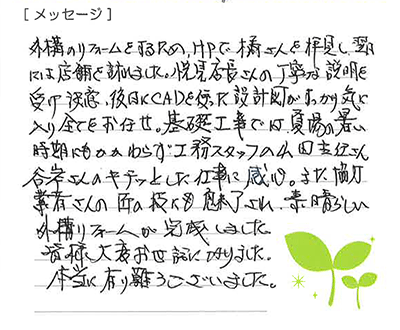 [ メッセージ ]
外構のリフォームをするため、HPで橘さんを拝見し、翌日
には店舗を訪れました。悦見店長さんの丁寧な説明を
受け納得、後日にCADを使った設計図がすっかり気に
入り全てをお任せ。基礎工事では夏場の暑い
時期にもかかわらず工務スタッフの山田主任さん
谷岩さんのキチッとした仕事に感心。また協力
業者さんの匠の技にも魅了され、素晴らしい
外構リフォームが完成しました。
皆様大変お世話になりました。
本当に有り難うございました。